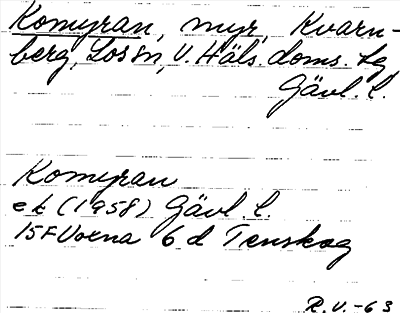 Komyran, myr, Kvarn-
berg, Los sn, V. Häls. doms. sg
Gävl. l.
Komyran
ek (1958) Gävl. l.
15F Voxna 6 d Tenskog
R.V.-63